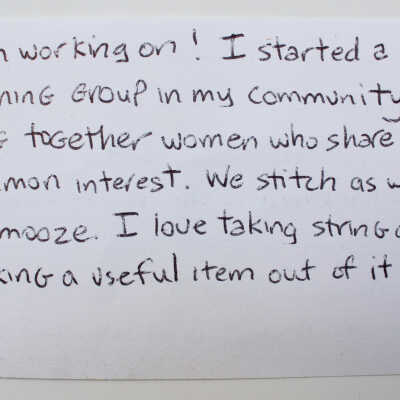 working on! I started a
GROUP in my community
together women who share
interest. We stitch as
I love taking string
a useful item out of it